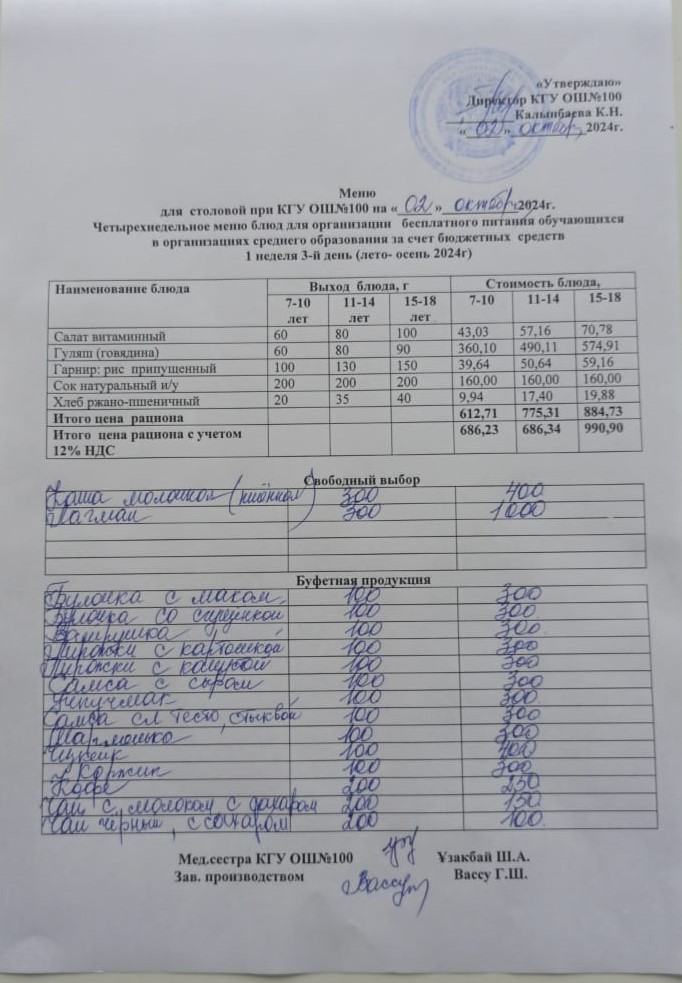 «Утверждаю»
Директор КГУ ОШ№100
Калынбаева К.Н.
«02» октябр 2024г.
Меню
для столовой при КГУ ОШ№100 на «02» октябр 2024г.
Четырехнедельное меню блюд для организации бесплатного питания обучающихся
в организациях среднего образования за счет бюджетных средств
1 неделя 3-й день (лето- осень 2024г)
Наименование блюда Выход блюда, г Стоимость блюда,
7-10 лет 11-14 лет 15-18 лет 7-10 11-14 15-18
Салат витаминный 60 80 100 43,03 57,16 70,78
Гуляш (говядина) 60 80 90 360,10 490,11 574,91
Гарнир: рис припущенный 100 130 150 39,64 50,64 59,16
Сок натуральный и/у 200 200 200 160,00 160,00 160,00
Хлеб ржано-пшеничный 20 35 40 9,94 17,40 19,88
Итого цена рациона 612,71 775,31 884,73
Итого цена рациона с учетом 686,23 686,34 990,90
12% НДС
Свободный выбор
Каша молочная (пшённая) 300 400
Лагман 300 1000
Буфетная продукция
Булочка с маком 100 300
Булочка со сгущенкой 100 300
Ватрушка 100 300
Пирожки с картошкой 100 300
Пирожки с капустой 100 300
Самса с сыром 100 300
Учпучмак 100 300
Самса сл тесто, с тыквой 100 300
100 300
100 400
Коржик 100 300
Кофе 200 250
Чай с молоком с сахаром 200 150
Чай черный, с сахаром 200 100
Мед.сестра КГУ ОШ№100 Ұзакбай Ш.А.
Зав. производством Вассу Г.Ш.